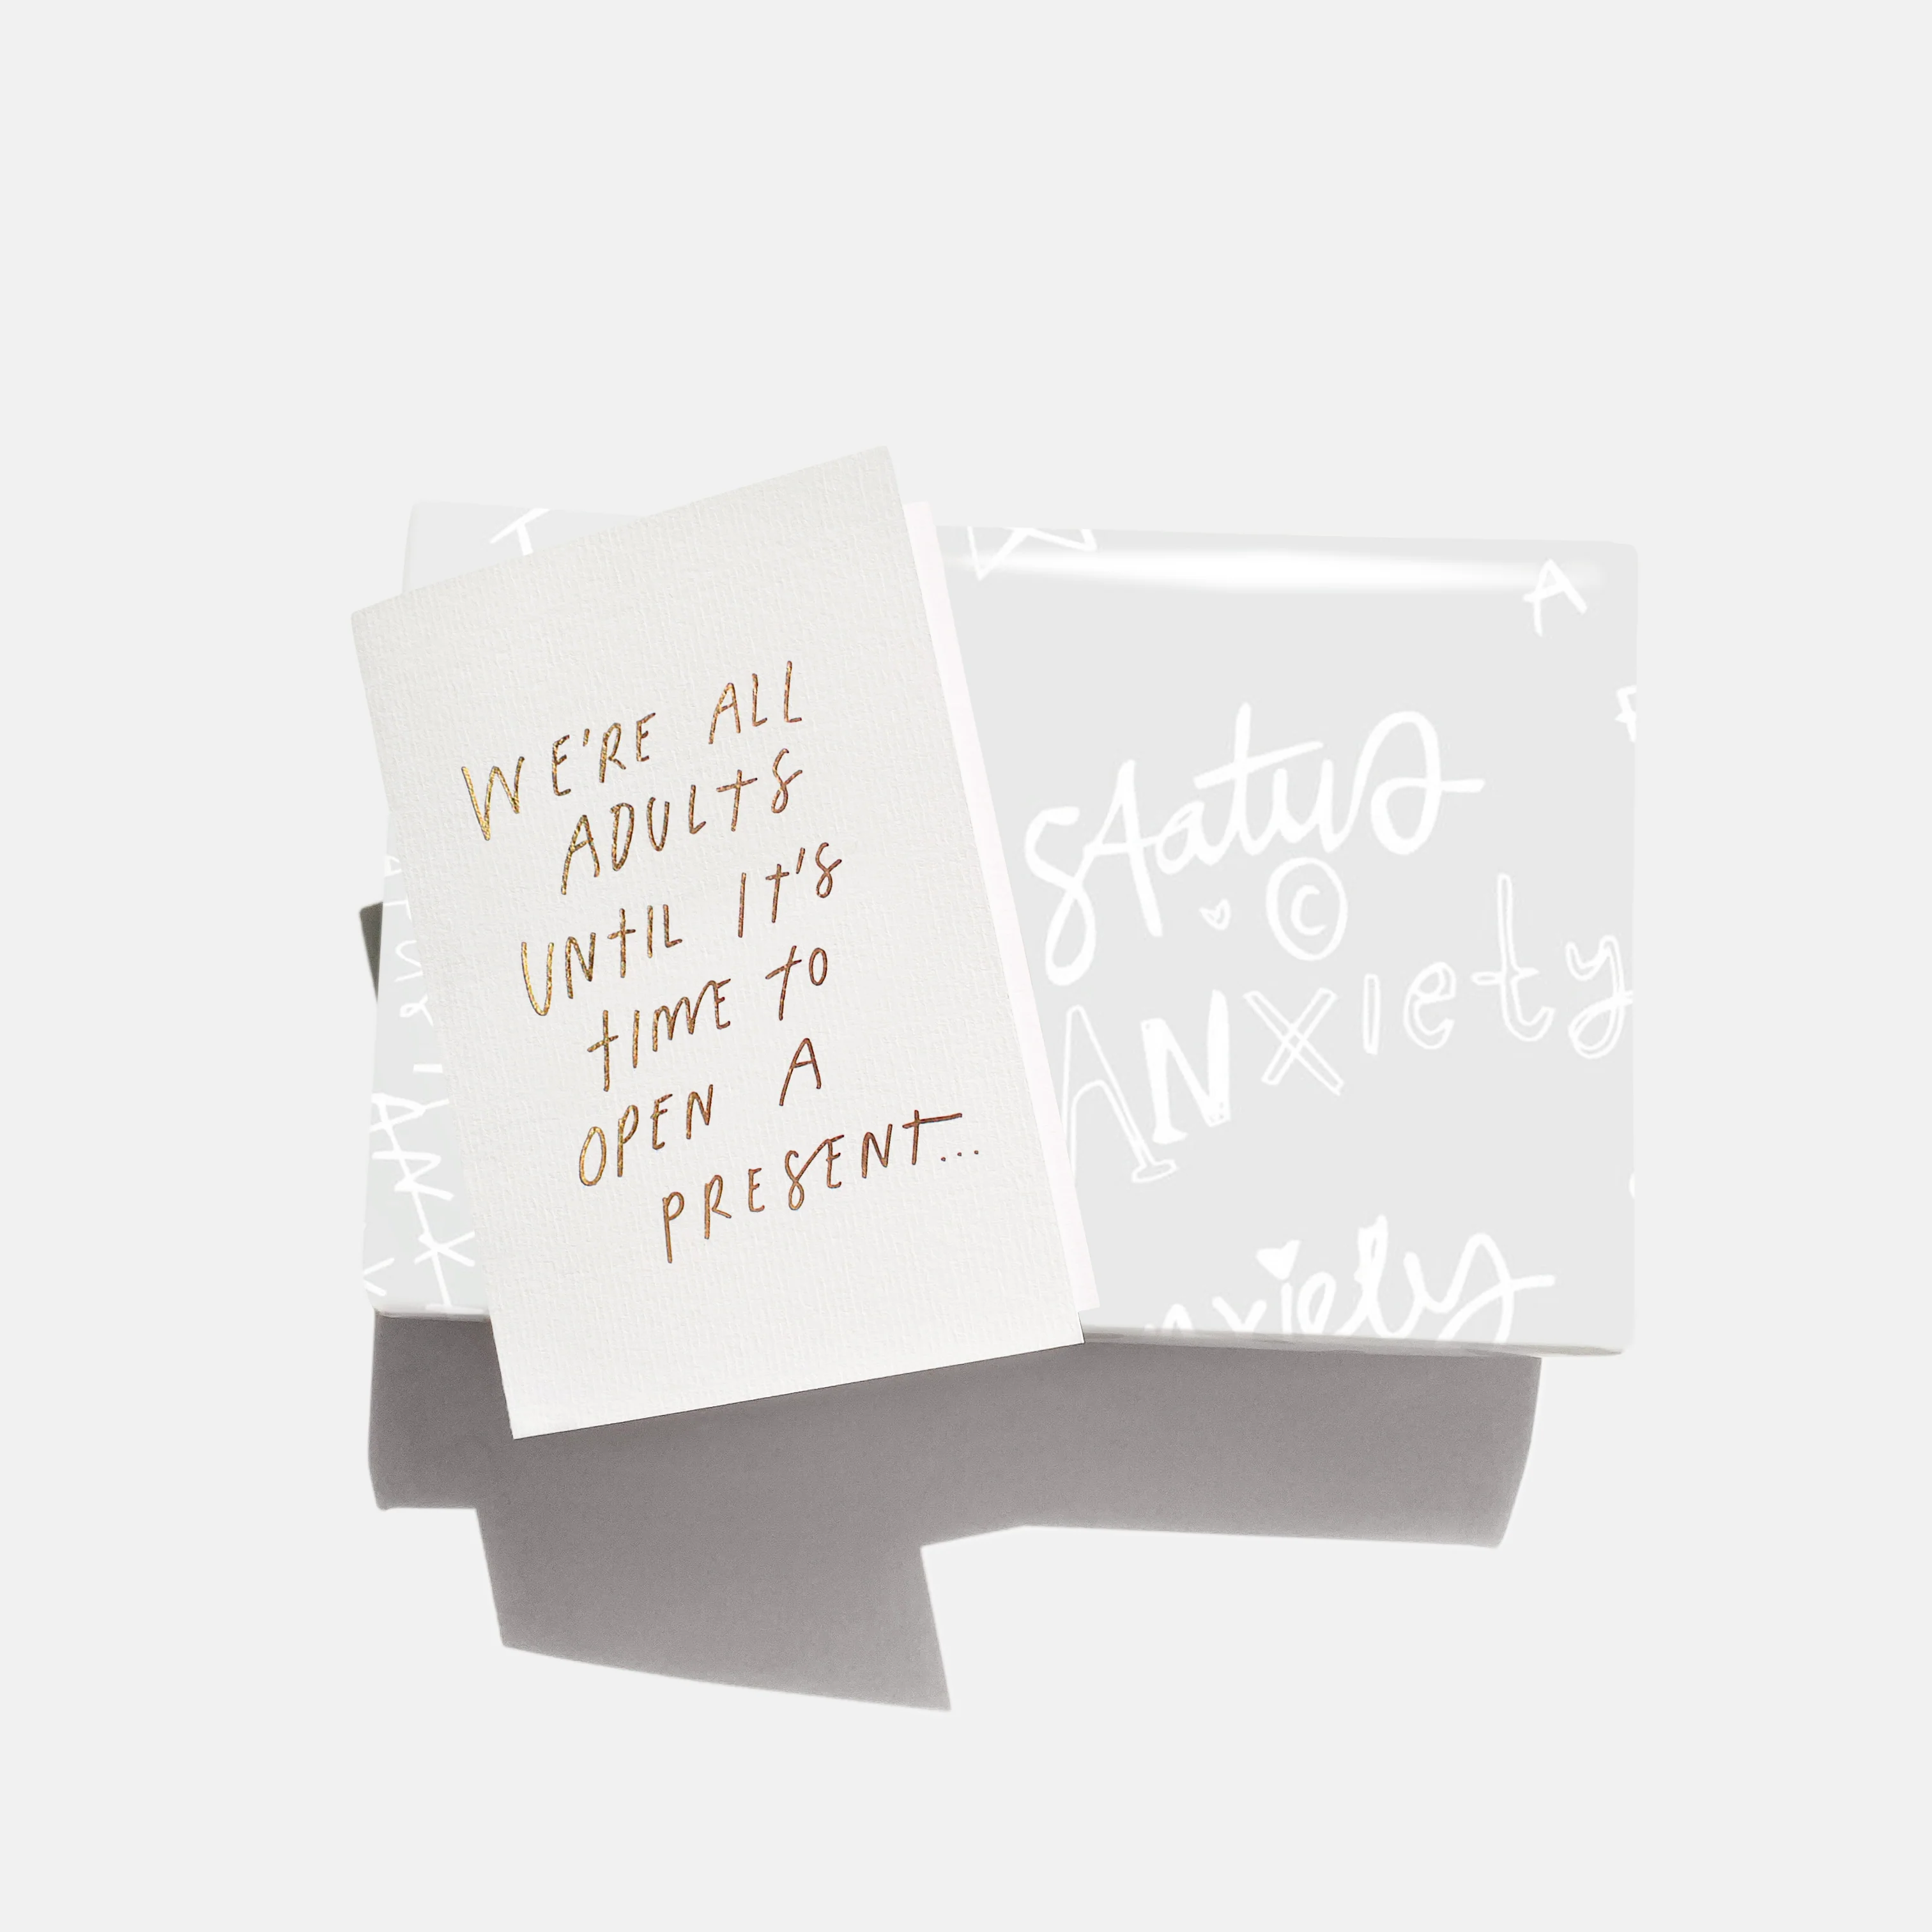 WE'RE ALL
ADULTS
UNTIL IT'S
TIME TO
OPEN A
PRESENT...
A
Status
©
ANXiety